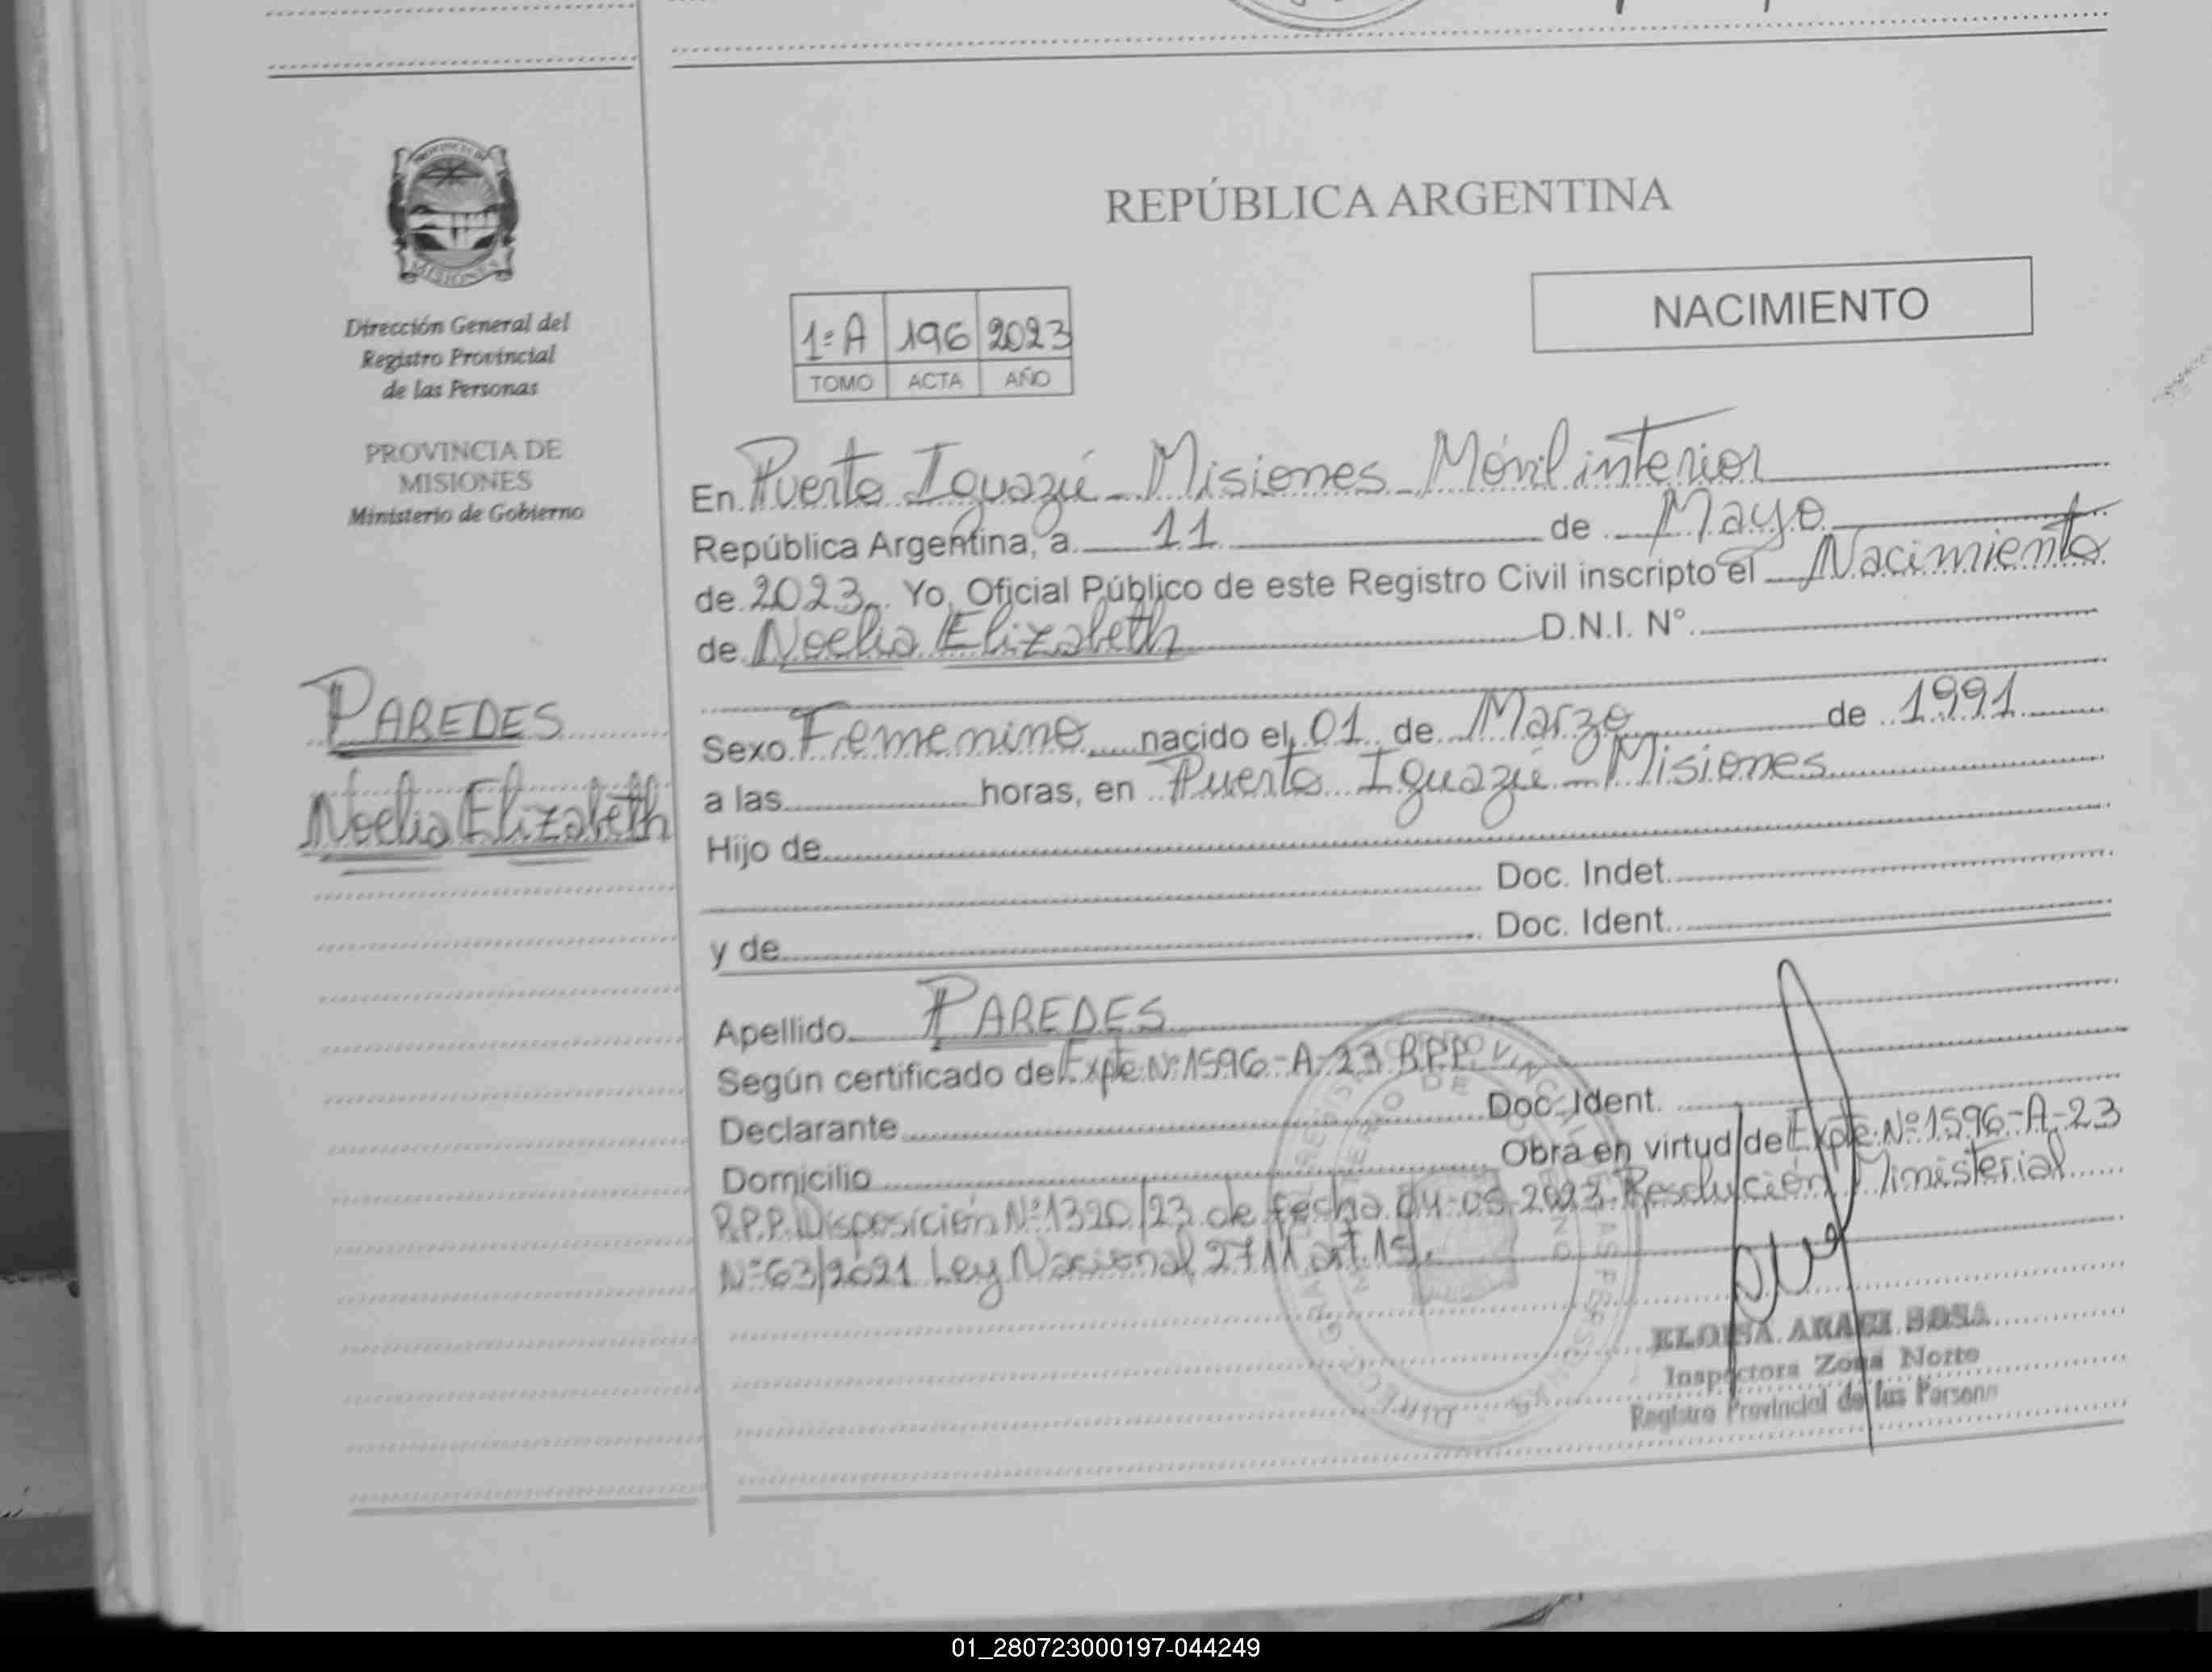 REPÚBLICA ARGENTINA
NACIMIENTO
PROVINCIA DE
MISIONES
Dirección General del
Registro Provincial
de las Personas
PROVINCIA DE
MISIONES
Ministerio de Gobierno
1º A 196 2023
TOMO ACTA AÑO
PAREDES
Noelia Elizabeth
En Puerto Iguazú - Misiones - Móvil interior
República Argentina, a 11 de Mayo
de 2023. Yo, Oficial Público de este Registro Civil inscripto el Nacimiento
de Noelia Elizabeth D.N.I. Nº
Sexo Femenino nacido el 01 de Marzo de 1991
a las horas, en Puerto Iguazú - Misiones
Hijo de
Doc. Indet.
y de Doc. Ident.
Apellido PAREDES
Según certificado de Expte Nº 1596-A-23 R.P.P.
Declarante Doc. Ident.
Domicilio Obra en virtud de Expte. Nº 1596-A-23
R.P.P. Disposición Nº 1320/23 de fecha 04-05-2023 Resolución Ministerial
Nº 63/2021 Ley Nacional 2711 art. 15.
ELOISA ARACI SOSA
Inspectora Zona Norte
Registro Provincial de las Person
01_280723000197-044249